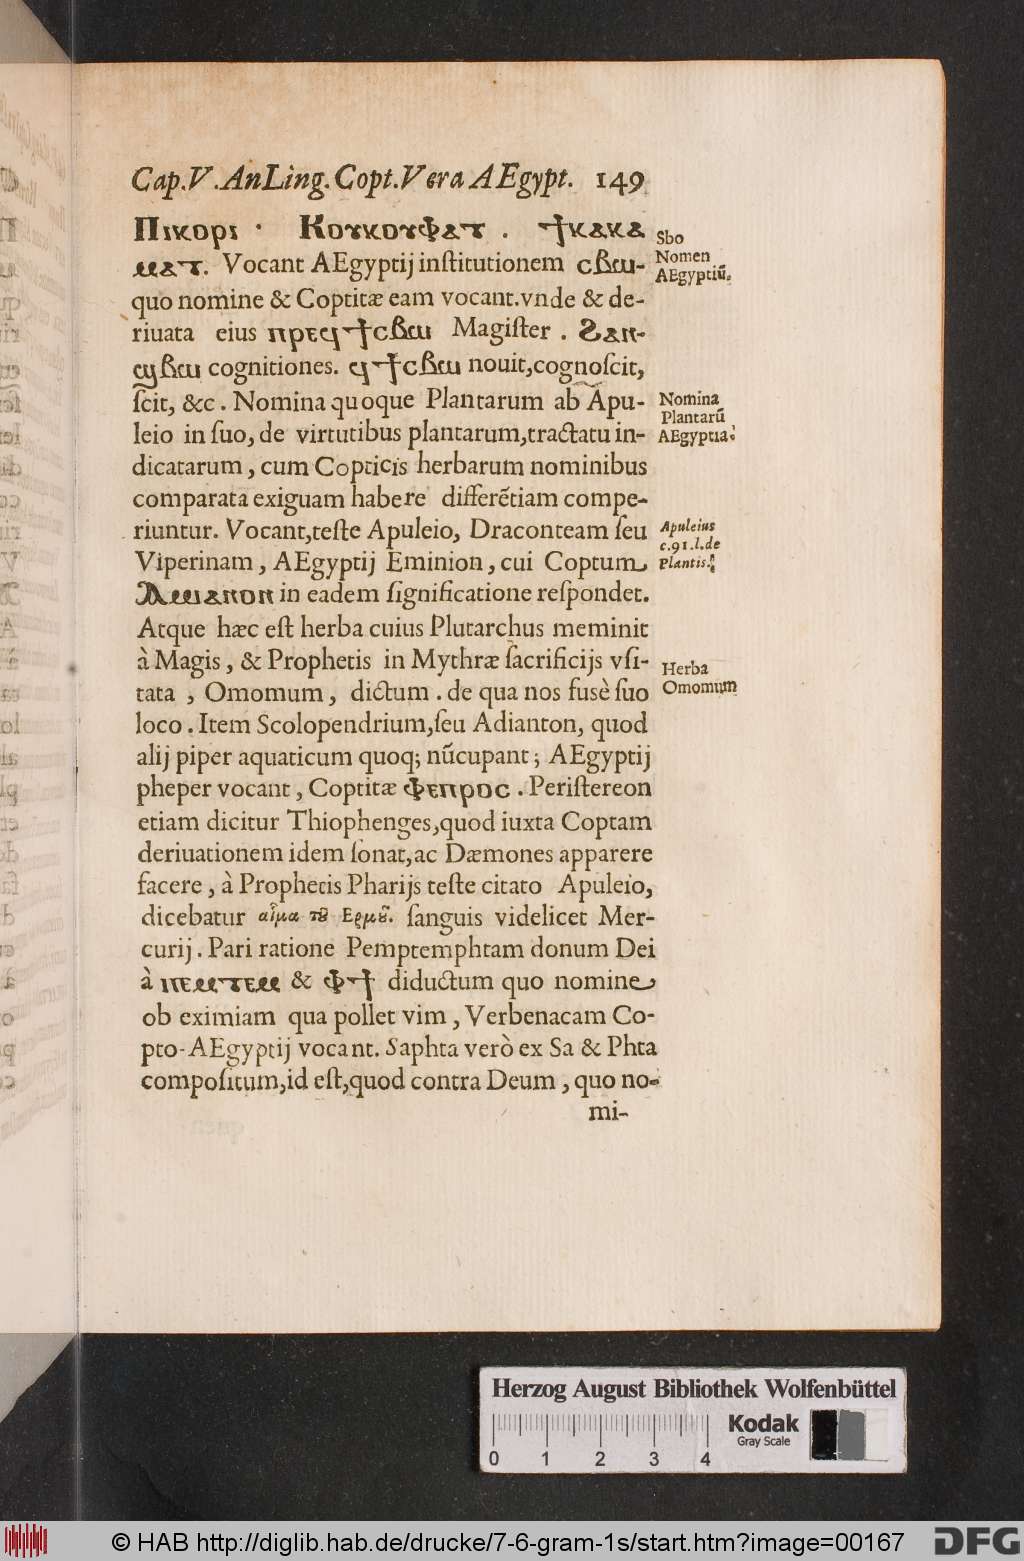 Cap.V.AnLing.Copt.Vera AEgypt. 149
Ⲡⲓⲕⲟⲣⲓ · Ⲕⲟⲩⲕⲟⲩⲫⲁⲧ . ϯⲕⲁⲕⲁ
ⲙⲁⲧ. Vocant AEgyptij inſtitutionem ⲥⲃⲱ-
quo nomine & Coptitæ eam vocant.vnde & de-
riuata eius ⲡⲣⲉϥϯⲥⲃⲱ Magiſter . Ϩⲁⲛ-
ⲥⲃⲱ cognitiones. ϥϯⲥⲃⲱ nouit,cognoſcit,
ſcit, &c. Nomina quoque Plantarum ab Apu-
leio in ſuo, de virtutibus plantarum,tractatu in-
dicatarum, cum Copticis herbarum nominibus
comparata exiguam habere differẽtiam compe-
riuntur. Vocant,teſte Apuleio, Draconteam ſeu
Viperinam, AEgyptij Eminion, cui Coptum
Ⲁⲙⲓⲁⲛⲟⲛ in eadem ſignificatione reſpondet.
Atque hæc eſt herba cuius Plutarchus meminit
à Magis, & Prophetis in Mythræ ſacrificijs vſi-
tata , Omomum, dictum . de qua nos fusè ſuo
loco. Item Scolopendrium,ſeu Adianton, quod
alij piper aquaticum quoq; nũcupant; AEgyptij
pheper vocant, Coptitæ ⲫⲉⲡⲣⲟⲥ . Periſtereon
etiam dicitur Thiophenges,quod iuxta Coptam
deriuationem idem ſonat,ac Dæmones apparere
facere, à Prophetis Pharijs teſte citato Apuleio,
dicebatur αἷμα τȣ̃ Ερμȣ̃. ſanguis videlicet Mer-
curij. Pari ratione Pemptemphtam donum Dei
à ⲡⲉⲙⲧⲉⲙ & ⲫϯ diductum quo nomine
ob eximiam qua pollet vim, Verbenacam Co-
pto-AEgyptij vocant. Saphta verò ex Sa & Phta
compoſitum,id eſt,quod contra Deum, quo no-
mi-
Sbo
Nomen
AEgyptiũ.
Nomina
Plantarũ
AEgyptia.
Apuleius
c.91.l.de
Plantis.
Herba
Omomum
Herzog August Bibliothek Wolfenbüttel
Kodak
Gray Scale
0 1 2 3 4
© HAB http://diglib.hab.de/drucke/7-6-gram-1s/start.htm?image=00167
DFG